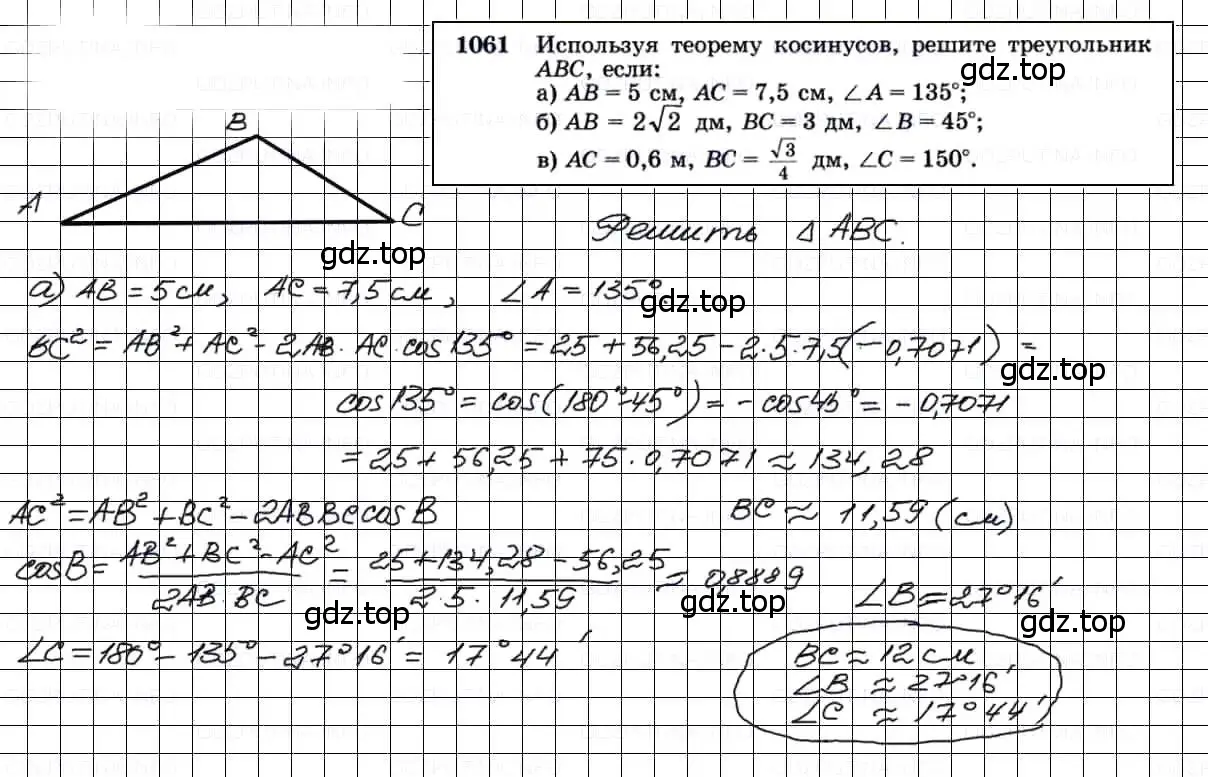 1061 Используя теорему косинусов, решите треугольник
ABC, если:
gdz.top
а) AB = 5 см, AC = 7,5 см, ∠A = 135°;
б) AB = 2√2 дм, BC = 3 дм, ∠B = 45°;
в) AC = 0,6 м, BC = √3/4 дм, ∠C = 150°.
B
A
C
Решить △ ABC.
gdz.top
а) AB = 5 см, AC = 7,5 см, ∠A = 135°
gdz.top
BC² = AB² + AC² - 2AB · AC · cos 135° = 25 + 56,25 - 2·5·7,5(-0,7071) =
gdz.top
cos 135° = cos(180°-45°) = - cos 45° = - 0,7071
= 25 + 56,25 + 75 · 0,7071 ≈ 134,28
AC² = AB² + BC² - 2AB BC cos B
BC ≈ 11,59 (см)
cos B = (AB² + BC² - AC²)/(2AB · BC) = (25 + 134,28 - 56,25)/(2·5·11,59) = 0,8889
∠B = 27°16'
gdz.top
gdz.top
gdz.top
∠C = 180° - 135° - 27°16' = 17°44'
BC ≈ 12 см
∠B ≈ 27°16'
∠C ≈ 17°44'
gdz.top